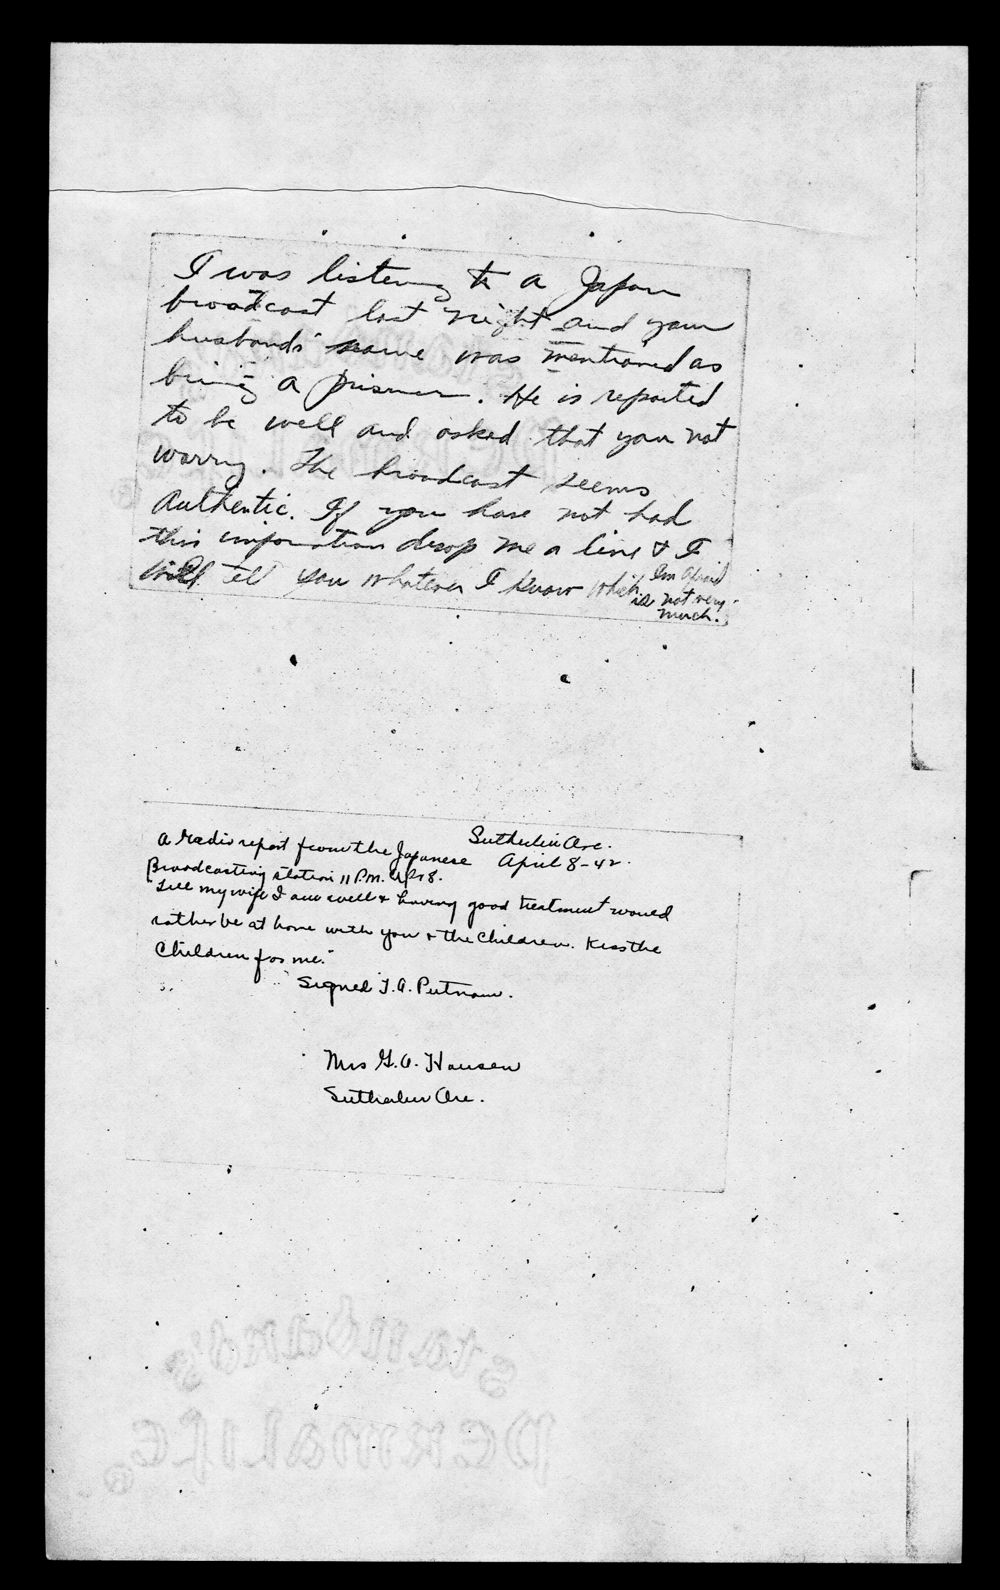 I was listening to a Japan
broadcast last night and your
husbands' name was mentioned as
being a prisoner. He is reported
to be well and asked that you not
worry. The broadcast seems
authentic. If you have not had
this information drop me a line & I
will tell you whatever I know which I'm afraid
is not very
much.
Sutherlin Ore.
April 8-42.
A radio report from the Japanese
Broadcasting station 11 P.M. Apr 8.
"Tell my wife I am well & having good treatment would
rather be at home with you & the children. Kiss the
Children for me."
Signed P.A. Putnam.
Mrs G.A. Hansen
Sutherlin Ore.
Stanbard's
PERMALIFE
®